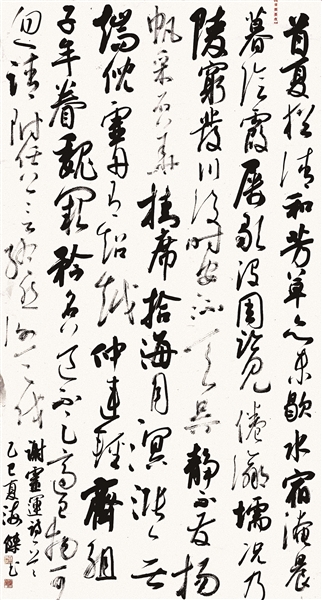 首夏猶清和芳草亦未歇水宿淹晨
暮陰霞屢興没周覽倦瀛壖况乃
陵窮髮川後時安流天吴静不發揚
帆采石華掛席拾海月溟漲無
端倪虚舟有超越仲連輕齊組
子牟眷魏闕矜名道不足適己物可
忽請附任公言終然謝天伐
謝靈運詩一首
乙巳夏海傑書